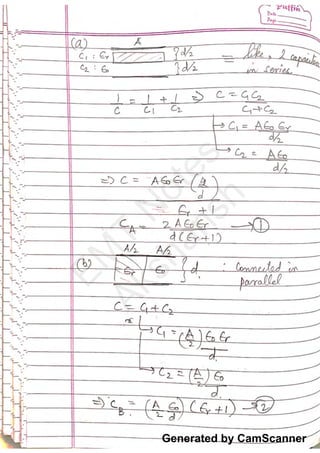 Puffin
Date
Page
(a) A
C₁ : εr } d/2 = like, 2 capacitors
C₂ : ε₀ } d/2 in series
1/C = 1/C₁ + 1/C₂ ⇒ C = C₁C₂ / C₁+C₂
→ C₁ = Aε₀εr / d/2
→ C₂ = Aε₀ / d/2
⇒ C = Aε₀εr (2/d)
εr + 1
C_A = 2Aε₀εr / d(εr+1) → ①
A/2 A/2
(b) εr ε₀ } d : Connected in
parallel
C = C₁ + C₂
→ C₁ = (A/2) ε₀εr / d
→ C₂ = (A/2) ε₀ / d
⇒ C_B = (A/2 ε₀/d) (εr+1) → ②
EMT Notes
Generated by CamScanner